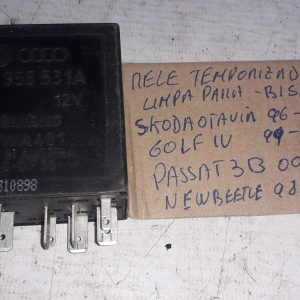 955 531A
12V
810898
RELE TEMPORIZAD
LIMPA PARA-BISA
SKODA OTAVIA 96-
GOLF IV 99-
PASSAT 3B 00
NEW BEETLE 98